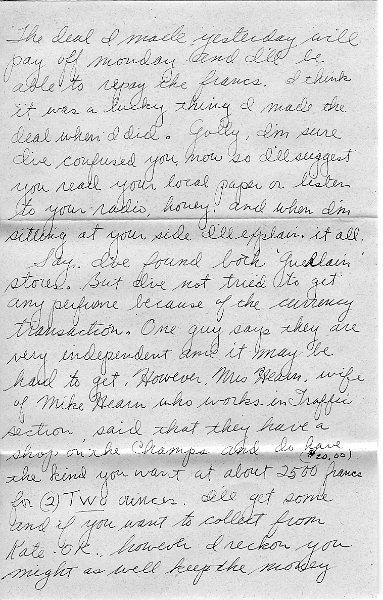 The deal I made yesterday will
pay off monday and I'll be
able to repay the francs. I think
it was a lucky thing I made the
deal when I did. Golly, I'm sure
I've confused you now so I'll suggest
you read your local paper or listen
to your radio, honey. and when I'm
sitting at your side I'll explain it all.
Say. I've found both "Guerlain"
stores. But I've not tried to get
any perfume because of the currency
transaction. One guy says they are
very independent and it may be
hard to get. However, Mrs Hearn, wife
of Mike Hearn who works in Traffic
section, said that they have a
shop on the Champs and do have
($20.00)
the kind you want at about 2500 francs
for (2) TWO ounces. I'll get some
and if you want to collect from
Kate - OK. however I reckon you
might as well keep the money